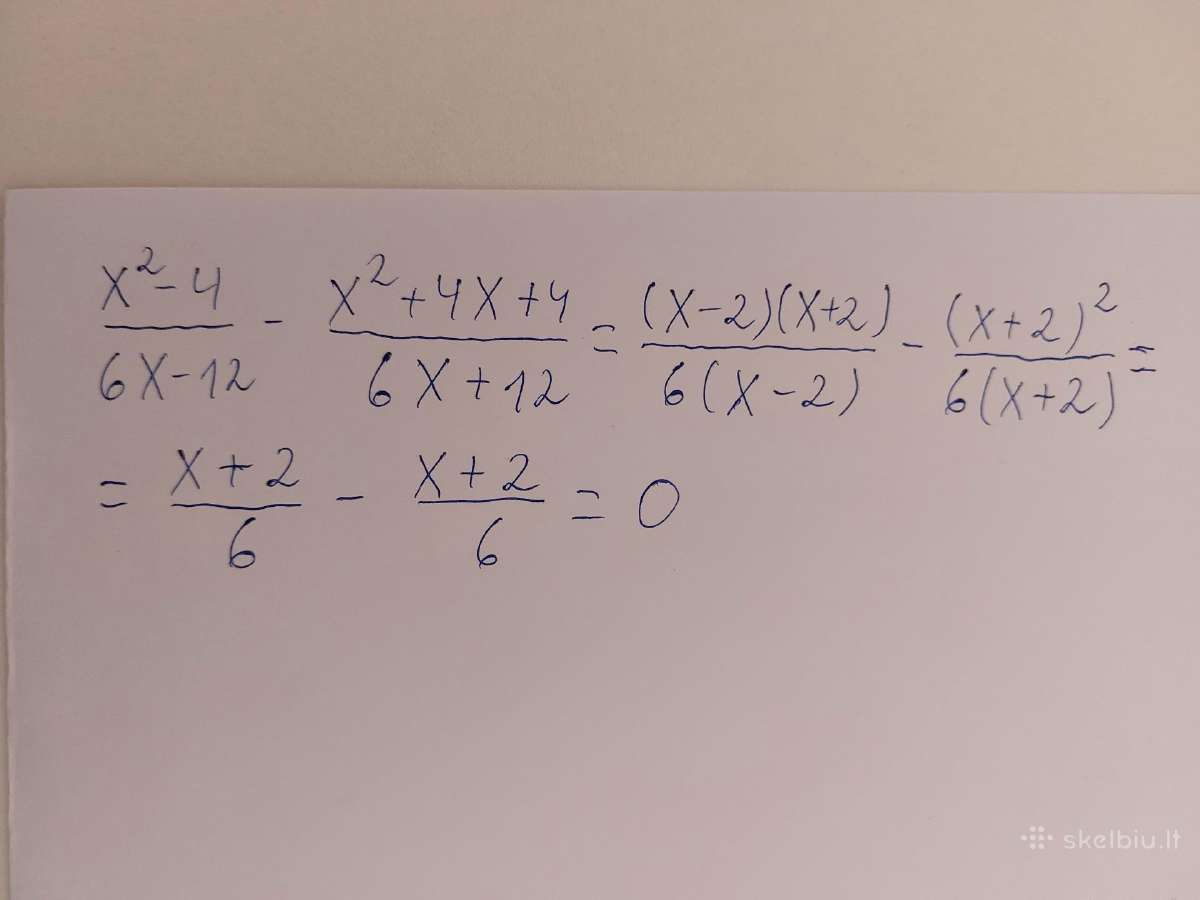 x²-4/6x-12 - x²+4x+4/6x+12 = (x-2)(x+2)/6(x-2) - (x+2)²/6(x+2) =
= x+2/6 - x+2/6 = 0
skelbiu.lt